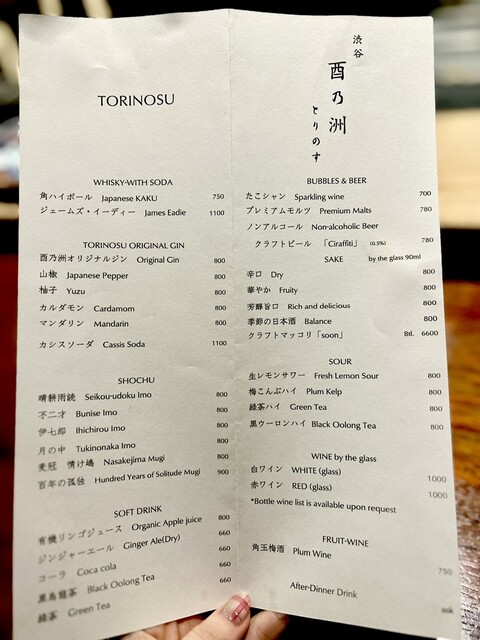 TORINOSU
WHISKY-WITH SODA
角ハイボール Japanese KAKU 750
ジェームズ・イーディー James Eadie 1100
TORINOSU ORIGINAL GIN
酉乃洲オリジナルジン Original Gin 800
山椒 Japanese Pepper 800
柚子 Yuzu 800
カルダモン Cardamom 800
マンダリン Mandarin 800
カシスソーダ Cassis Soda 1100
SHOCHU
晴耕雨読 Seikou-udoku Imo 800
不二才 Bunise Imo 800
伊七郎 Ihichirou Imo 800
月の中 Tukinonaka Imo 800
麦冠 情け嶋 Nasakejima Mugi 800
百年の孤独 Hundred Years of Solitude Mugi 900
SOFT DRINK
有機リンゴジュース Organic Apple juice 800
ジンジャーエール Ginger Ale(Dry) 660
コーラ Coca cola 660
黒烏龍茶 Black Oolong Tea 660
緑茶 Green Tea 660
渋谷
酉乃洲
とりのす
BUBBLES & BEER
たこシャン Sparkling wine 700
プレミアムモルツ Premium Malts 780
ノンアルコール Non-alcoholic Beer
クラフトビール 「Ciraffiti」 (0.5%) 780
SAKE by the glass 90ml
辛口 Dry 800
華やか Fruity 800
芳醇旨口 Rich and delicious 800
季節の日本酒 Balance 800
クラフトマッコリ「soon」 Btl. 6600
SOUR
生レモンサワー Fresh Lemon Sour 800
梅こんぶハイ Plum Kelp 800
緑茶ハイ Green Tea 800
黒ウーロンハイ Black Oolong Tea 800
WINE by the glass
白ワイン WHITE (glass) 1000
赤ワイン RED (glass) 1000
*Bottle wine list is available upon request
FRUIT-WINE
角玉梅酒 Plum Wine 750
After-Dinner Drink ask